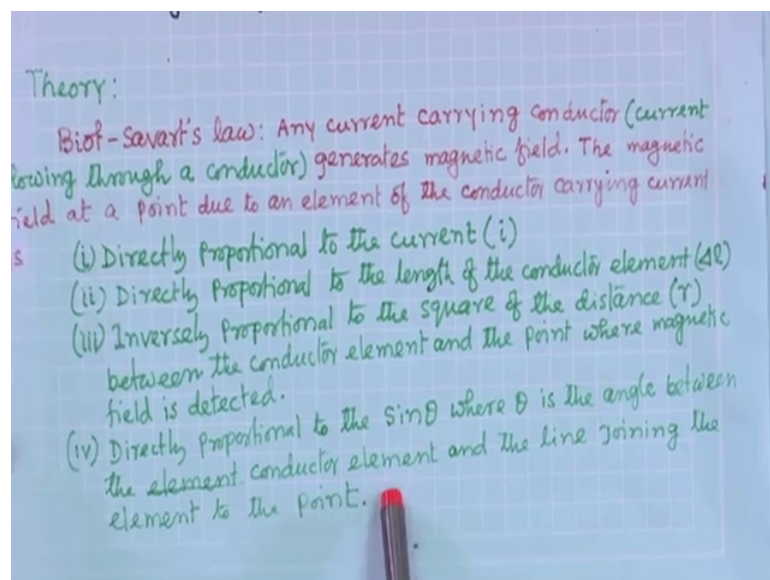 Theory:
Biot-Savart's law: Any current carrying conductor (current
lowing through a conductor) generates magnetic field. The magnetic
ield at a point due to an element of the conductor carrying current
s (i) Directly proportional to the current (i)
(ii) Directly proportional to the length of the conductor element (Δl)
(iii) Inversely proportional to the square of the distance (r)
between the conductor element and the point where magnetic
field is detected.
(iv) Directly proportional to the sinθ where θ is the angle between
the element conductor element and the line joining the
element to the point.